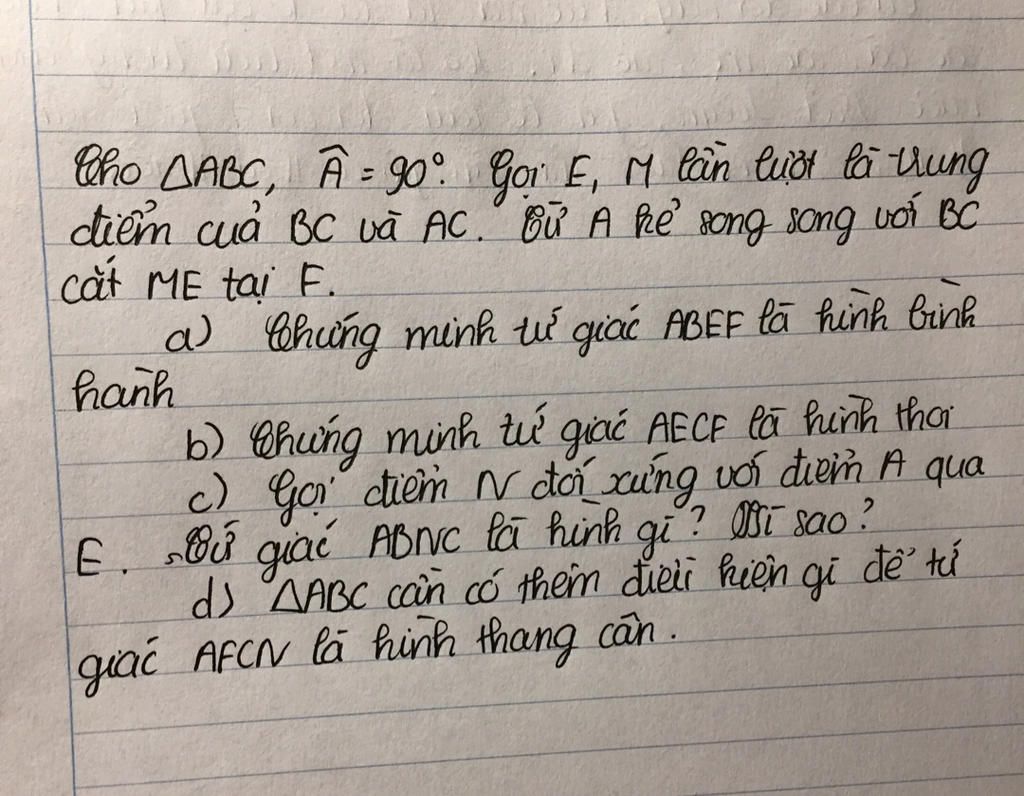 Cho △ABC, Â = 90°. Gọi E, M lần lượt là trung
điểm cuả BC và AC. Từ A kẻ song song với BC
cắt ME tại F.
a) Chứng minh tứ giác ABEF là hình bình
hành
b) Chứng minh tứ giác AECF là hình thoi
c) Gọi điểm N đối xứng với điểm A qua
E. Tứ giác ABNC là hình gì? Vì sao?
d) △ABC cần có thêm điều kiện gì để tứ
giác AFCN là hình thang cân.